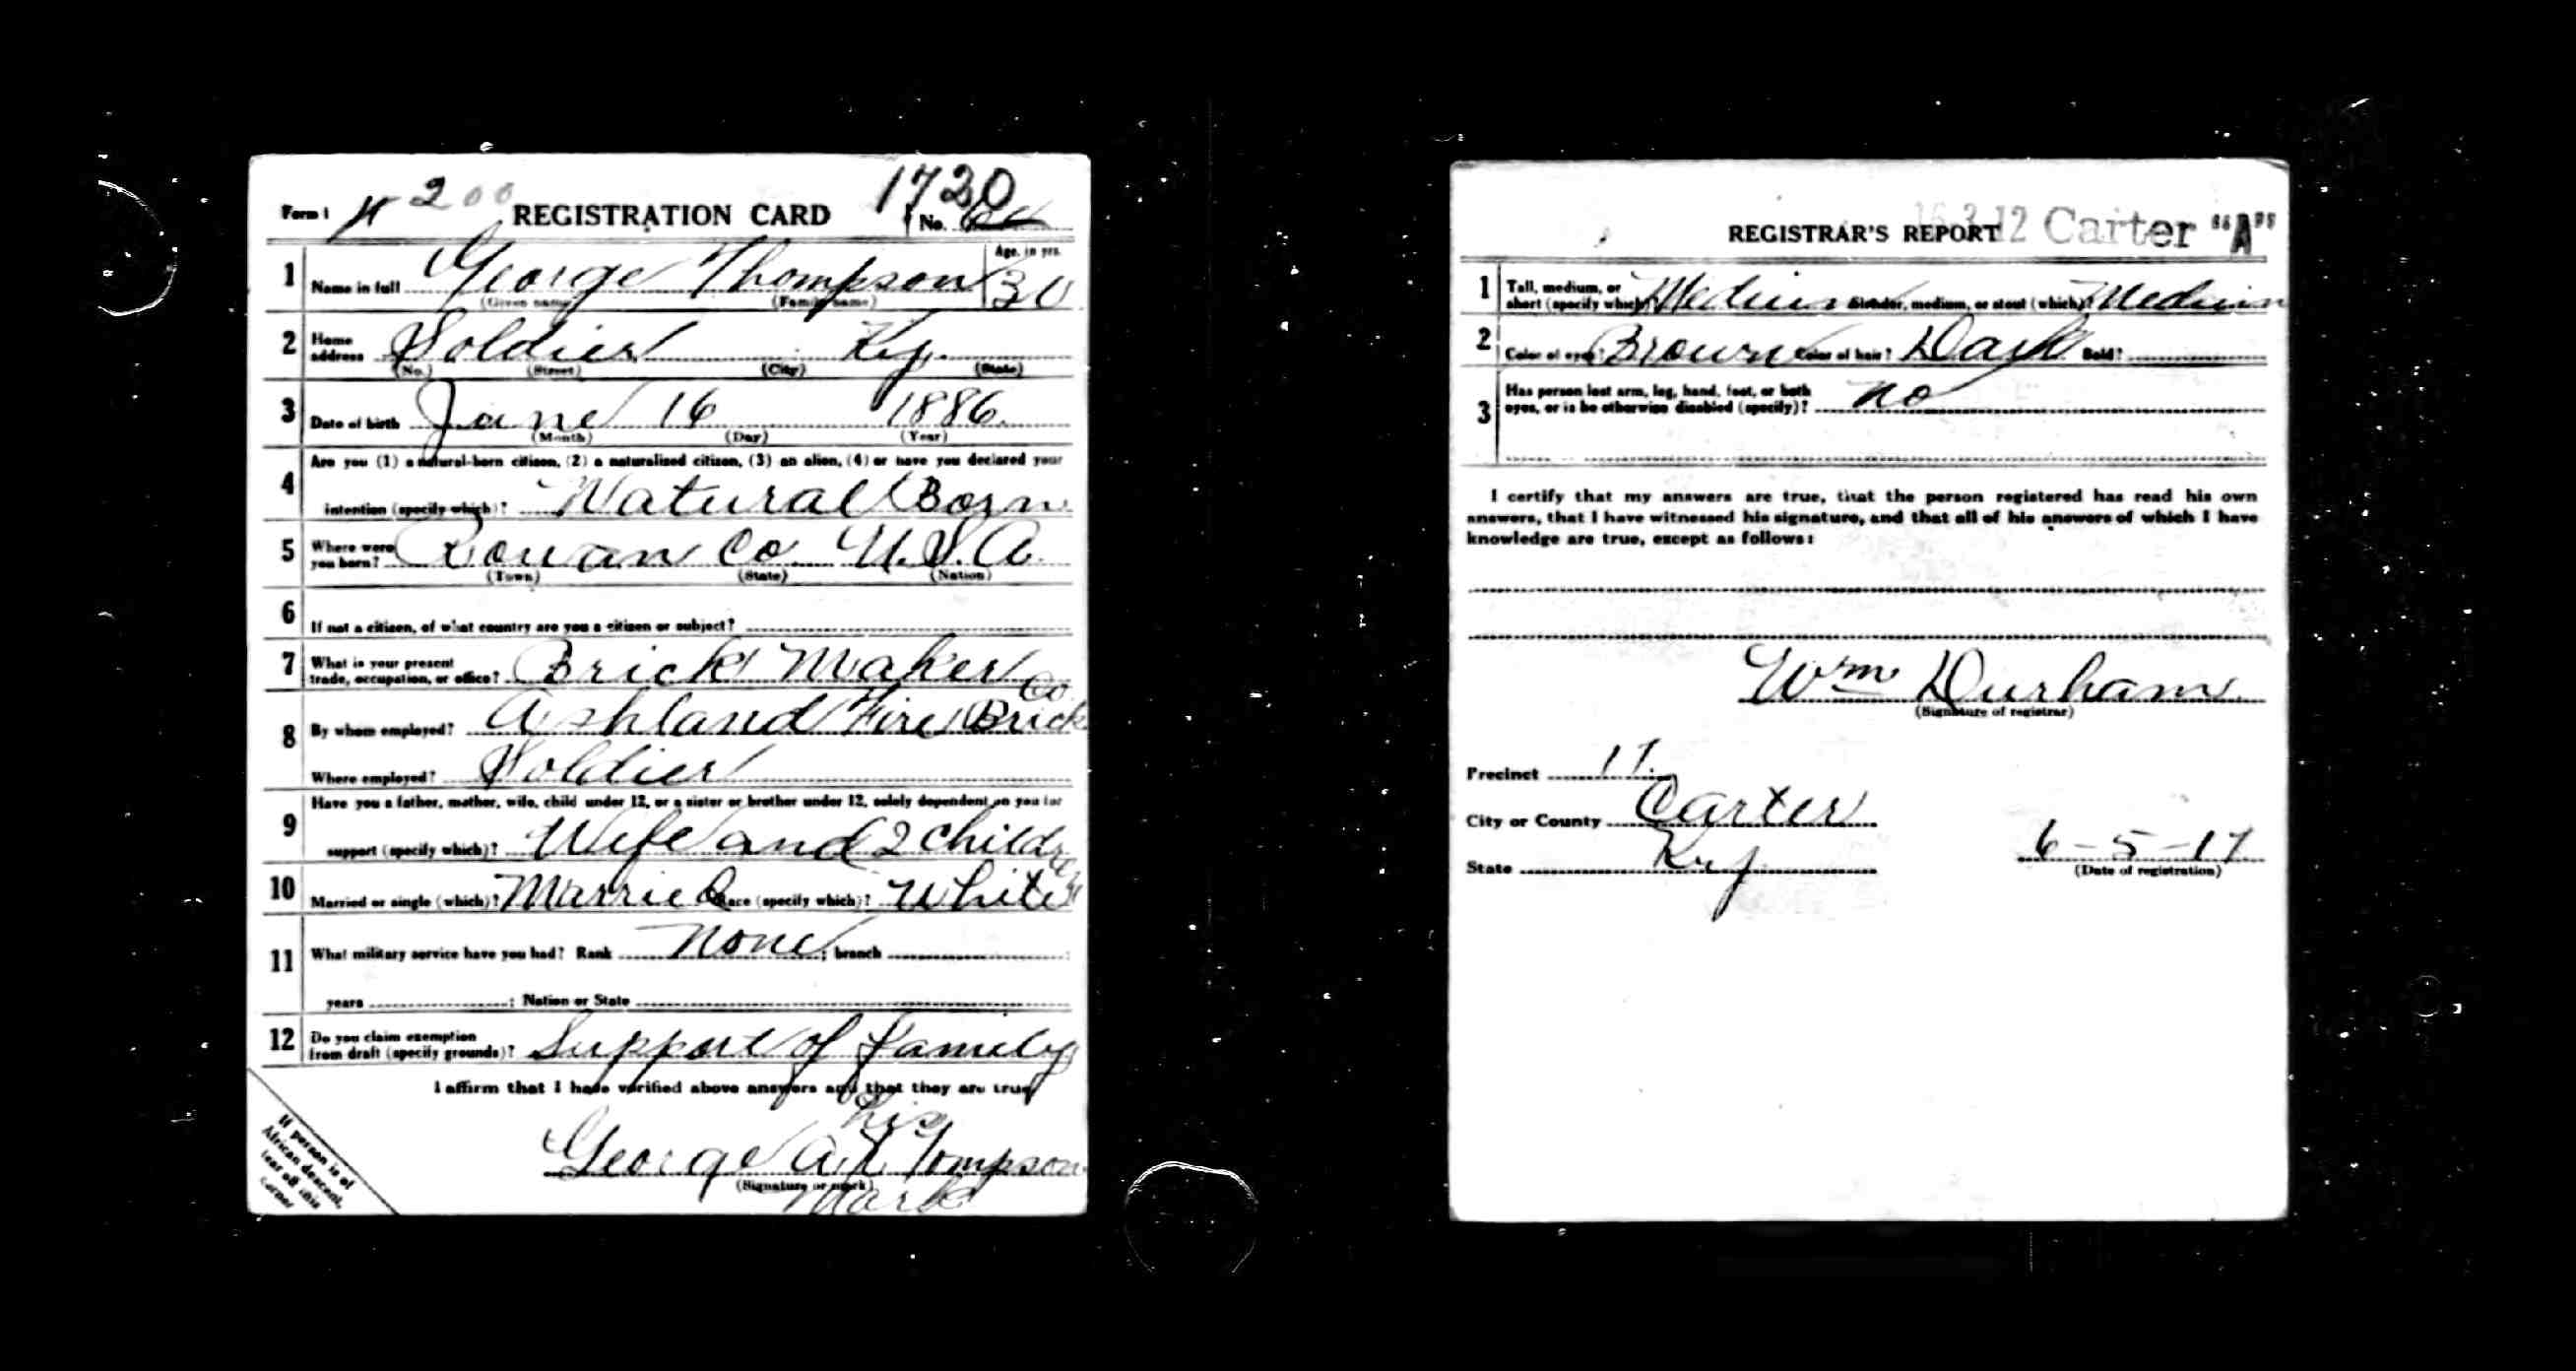 1720
Form 1 200 REGISTRATION CARD No.
1 Name in full George Thompson Age, in yrs. 30
(Given name) (Family name)
2 Home address Soldier Ky.
(No.) (Street) (City) (State)
3 Date of birth June 16 1886
(Month) (Day) (Year)
4 Are you (1) a natural-born citizen, (2) a naturalized citizen, (3) an alien, (4) or have you declared your
intention (specify which)? Natural Born
5 Where were you born? Rowan Co U.S.A.
(Town) (State) (Nation)
6 If not a citizen, of what country are you a citizen or subject?
7 What is your present trade, occupation, or office? Brick Maker
8 By whom employed? Ashland Fire Brick Co
Where employed? Soldier
9 Have you a father, mother, wife, child under 12, or a sister or brother under 12, solely dependent on you for
support (specify which)? Wife and 2 Children
10 Married or single (which)? Married Race (specify which)? White
11 What military service have you had? Rank None; branch
years ; Nation or State
12 Do you claim exemption from draft (specify grounds)? Support of family
I affirm that I have verified above answers and that they are true
his
George A. X Tompson
(Signature or mark)
Mark
If person is of
African descent,
tear off this
corner
REGISTRAR'S REPORT Carter "A"
1 Tall, medium, or short (specify which)? Medium Slender, medium, or stout (which)? Medium
2 Color of eyes? Brown Color of hair? Dark Bald?
3 Has person lost arm, leg, hand, foot, or both
eyes, or is he otherwise disabled (specify)? no
I certify that my answers are true, that the person registered has read his own
answers, that I have witnessed his signature, and that all of his answers of which I have
knowledge are true, except as follows:
Wm Durham
(Signature of registrar)
Precinct 17.
City or County Carter
State Ky
6-5-17
(Date of registration)